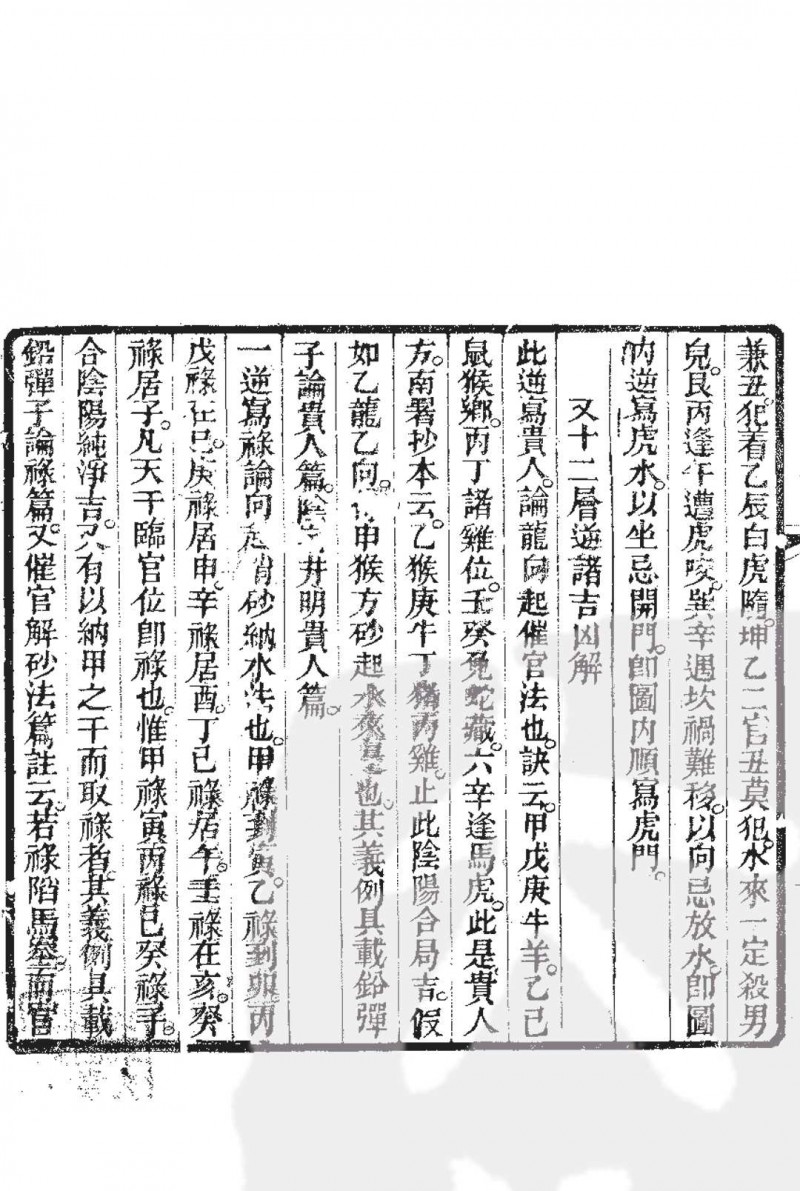 兼丑。犯看乙辰白虎隨。坤乙二宫丑莫犯。水來一定殺男
兒。艮丙逢午遭虎咬。巽辛遇坎禍難移。以向忌放水。卽圖
內逆寫虎水。以坐忌開門。卽圖內順寫虎門。
又十二層逆諸吉凶解
此逆寫貴人。論龍向起催官法也。訣云。甲戊庚牛羊。乙己
鼠猴鄉。丙丁諸雞位。壬癸兔蛇藏。六辛逢馬虎。此是貴人
方。南署抄本云。乙猴庚牛丁猪丙雞。止此陰陽合局吉。假
如乙龍乙向。申猴方砂起水來是也。其義例具載鉛彈
子論貴人篇。陰井明貴人篇。
一逆寫祿論向起消砂納水法也。甲祿到寅。乙祿到卯。丙
戊祿在巳。庚祿居申。辛祿居酉。丁己祿居午。壬祿在亥。癸
祿居子。凡天干臨官位卽祿也。惟甲祿寅丙祿巳癸祿子。
合陰陽純淨吉。又有以納甲之干而取祿者。其義例具載
鉛彈子論祿篇。又催官解砂法篇註云。若祿陷馬墓。而官